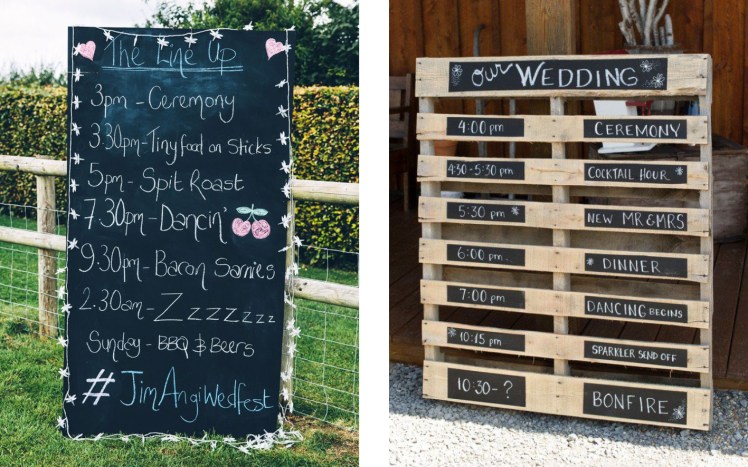 The Line Up
3pm - Ceremony
3.30pm - Tiny food on Sticks
5pm - Spit Roast
7.30pm - Dancin'
9.30pm - Bacon Sarnies
2.30am - Zzzzzzz
Sunday - BBQ & Beers
#JimAngiWedfest
our WEDDING
4:00 pm CEREMONY
4:30-5:30 pm COCKTAIL HOUR
5:30 pm NEW MR & MRS
6:00 pm DINNER
7:00 pm DANCING BEGINS
10:15 pm SPARKLER SEND OFF
10:30 - ? BONFIRE